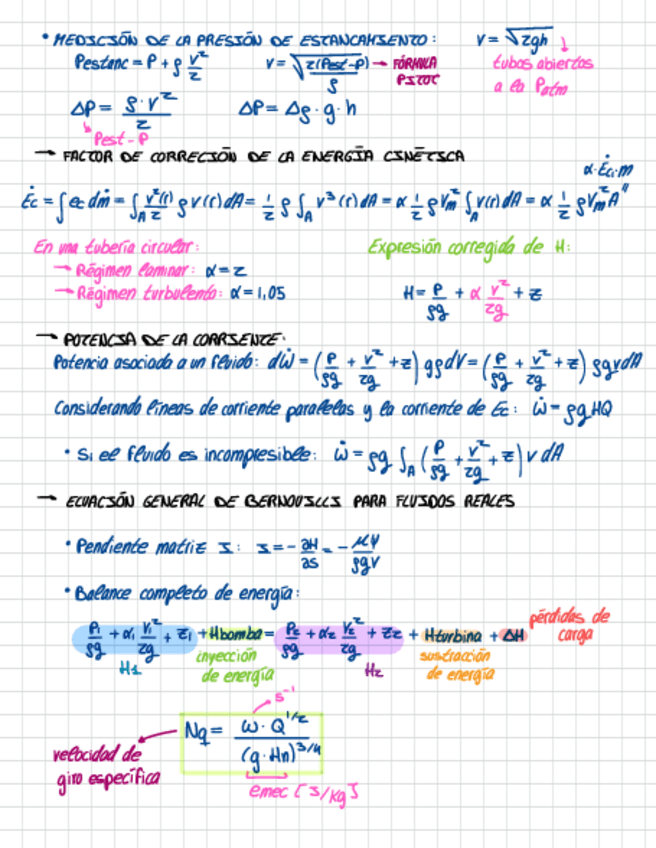 • MEDICIÓN DE LA PRESIÓN DE ESTANCAMIENTO: v = √2gh
Pestanc = P + ρ v²/2   v = √(2(Pest-P)/ρ) → FÓRMULA PITOT   tubos abiertos a la Patm
ΔP = ρ·v²/2   ΔP = Δρ·g·h
Pest-P
→ FACTOR DE CORRECIÓN DE LA ENERGÍA CINÉTICA
α·Ėc·m
Ėc = ∫ec dṁ = ∫A v²(r)/2 ρ v(r) dA = 1/2 ρ ∫A v³(r) dA = α 1/2 ρ Vm² ∫A v(r) dA = α 1/2 ρ Vm² A
En una tubería circular:   Expresión corregida de H:
→ Régimen laminar: α = 2
→ Régimen turbulento: α = 1,05   H = P/ρg + α v²/2g + z
→ POTENCIA DE LA CORRIENTE:
Potencia asociada a un fluido: dẆ = (P/ρg + v²/2g + z) gρdV = (P/ρg + v²/2g + z) ρgvdA
Considerando líneas de corriente paralelas y la corriente de Ec: Ẇ = ρgHQ
• Si el fluido es incompresible: Ẇ = ρg ∫A (P/ρg + v²/2g + z) v dA
→ ECUACIÓN GENERAL DE BERNOUILLI PARA FLUIDOS REALES
• Pendiente matriz I: I = -∂H/∂s = -μψ/ρgv
• Balance completo de energía:
P1/ρg + α1 V1²/2g + z1 + Hbomba = P2/ρg + α2 V2²/2g + z2 + Hturbina + ΔH   pérdidas de carga
H1   inyección de energía   H2   sustracción de energía
s⁻¹
Nq = ω·Q^1/2 / (g·Hn)^3/4
velocidad de giro específica
emec [J/kg]